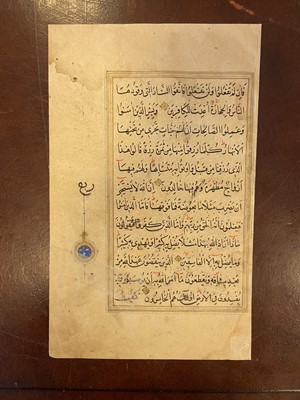 فَإِنْ لَمْ تَفْعَلُوا وَلَنْ تَفْعَلُوا فَاتَّقُوا النَّارَ الَّتِي وَقُودُهَا
النَّاسُ وَالْحِجَارَةُ أُعِدَّتْ لِلْكَافِرِينَ وَبَشِّرِ الَّذِينَ آمَنُوا
وَعَمِلُوا الصَّالِحَاتِ أَنَّ لَهُمْ جَنَّاتٍ تَجْرِي مِنْ تَحْتِهَا
الْأَنْهَارُ كُلَّمَا رُزِقُوا مِنْهَا مِنْ ثَمَرَةٍ رِزْقًا قَالُوا هَذَا
الَّذِي رُزِقْنَا مِنْ قَبْلُ وَأُتُوا بِهِ مُتَشَابِهًا وَلَهُمْ فِيهَا
أَزْوَاجٌ مُطَهَّرَةٌ وَهُمْ فِيهَا خَالِدُونَ إِنَّ اللَّهَ لَا يَسْتَحْيِي
أَنْ يَضْرِبَ مَثَلًا مَا بَعُوضَةً فَمَا فَوْقَهَا فَأَمَّا الَّذِينَ آمَنُوا
فَيَعْلَمُونَ أَنَّهُ الْحَقُّ مِنْ رَبِّهِمْ وَأَمَّا الَّذِينَ كَفَرُوا فَيَقُولُونَ
مَاذَا أَرَادَ اللَّهُ بِهَذَا مَثَلًا يُضِلُّ بِهِ كَثِيرًا وَيَهْدِي بِهِ كَثِيرًا
وَمَا يُضِلُّ بِهِ إِلَّا الْفَاسِقِينَ الَّذِينَ يَنْقُضُونَ عَهْدَ اللَّهِ مِنْ
بَعْدِ مِيثَاقِهِ وَيَقْطَعُونَ مَا أَمَرَ اللَّهُ بِهِ أَنْ يُوصَلَ وَ
يُفْسِدُونَ فِي الْأَرْضِ أُولَئِكَ هُمُ الْخَاسِرُونَ
كيف
ربع